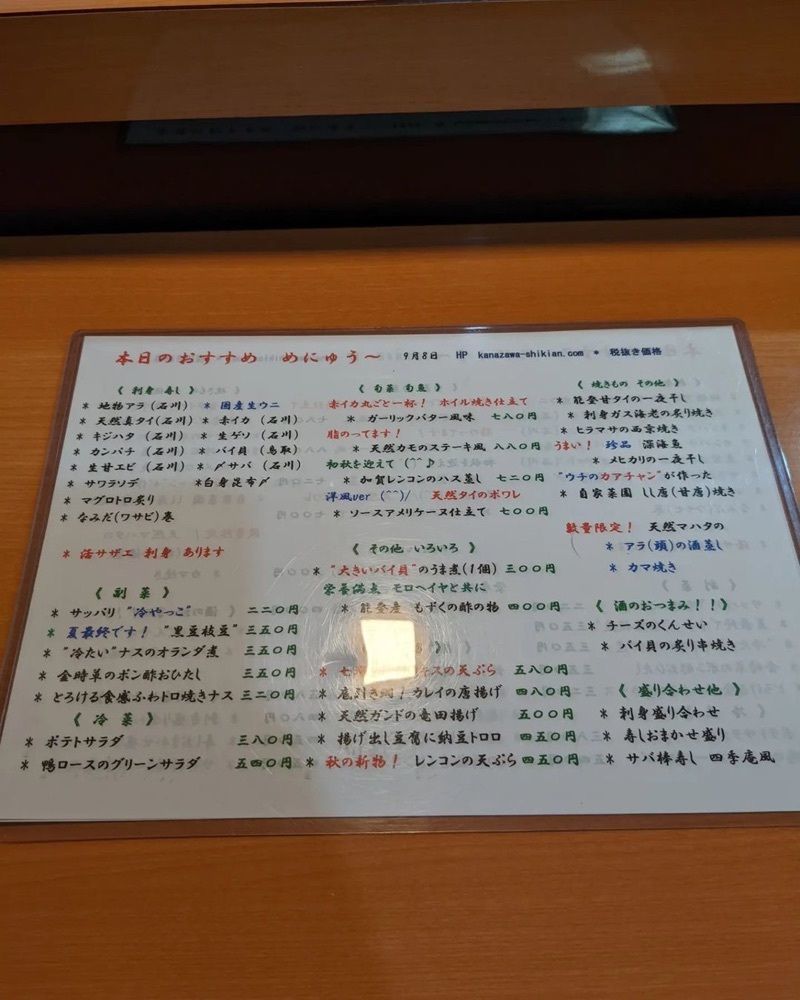 本日のおすすめ めにゅう〜 9月8日 HP kanazawa-shikian.com * 税抜き価格
《 刺身 寿し 》
* 地物アラ (石川) * 国産生ウニ
* 天然真タイ(石川) * 赤イカ (石川)
* キジハタ (石川) * 生ゲソ (石川)
* カンパチ (石川) * バイ貝 (鳥取)
* 生甘エビ (石川) * 〆サバ (石川)
* サワラソデ *白身昆布〆
* マグロトロ炙り
* なみだ(ワサビ)巻
* 活サザエ 刺身 あります
《 副 菜 》
* サッパリ "冷やっこ" 二二〇円
* 夏最終です! "黒豆枝豆" 三五〇円
* "冷たい"ナスのオランダ煮 三五〇円
* 金時草のポン酢おひたし 三五〇円
* とろける食感ふわトロ焼きナス 三二〇円
《 冷 菜 》
* ポテトサラダ 三八〇円
* 鴨ロースのグリーンサラダ 五四〇円
《 旬菜 旬魚 》
赤イカ丸ごと一杯! ホイル焼き仕立て
* ガーリックバター風味 七八〇円
脂のってます!
* 天然カモのステーキ風 八八〇円
初秋を迎えて (^^♪
* 加賀レンコンのハス蒸し 七二〇円
洋風ver (^^)/ 天然タイのポワレ
* ソースアメリケーヌ仕立て 七〇〇円
《 その他 いろいろ 》
* "大きいバイ貝"のうま煮(1個) 三〇〇円
栄養満点 モロヘイヤと共に
* 能登産 もずくの酢の物 四〇〇円
キスの天ぷら 五八〇円
* 底引き網! カレイの唐揚げ 四八〇円
* 天然ガンドの竜田揚げ 五〇〇円
* 揚げ出し豆腐に納豆トロロ 四五〇円
* 秋の新物! レンコンの天ぷら 四五〇円
《 焼きもの その他 》
* 能登甘ダイの一夜干し
* 刺身ガス海老の炙り焼き
* ヒラマサの西京焼き
うまい! 珍品 深海魚
* メヒカリの一夜干し
"ウチのカアチャン"が作った
* 自家菜園 しし唐(甘唐)焼き
数量限定! 天然マハタの
* アラ(頭)の酒蒸し
* カマ焼き
《 酒のおつまみ!! 》
* チーズのくんせい
* バイ貝の炙り串焼き
《 盛り合わせ他 》
* 刺身盛り合わせ
* 寿しおまかせ盛り
* サバ棒寿し 四季庵風